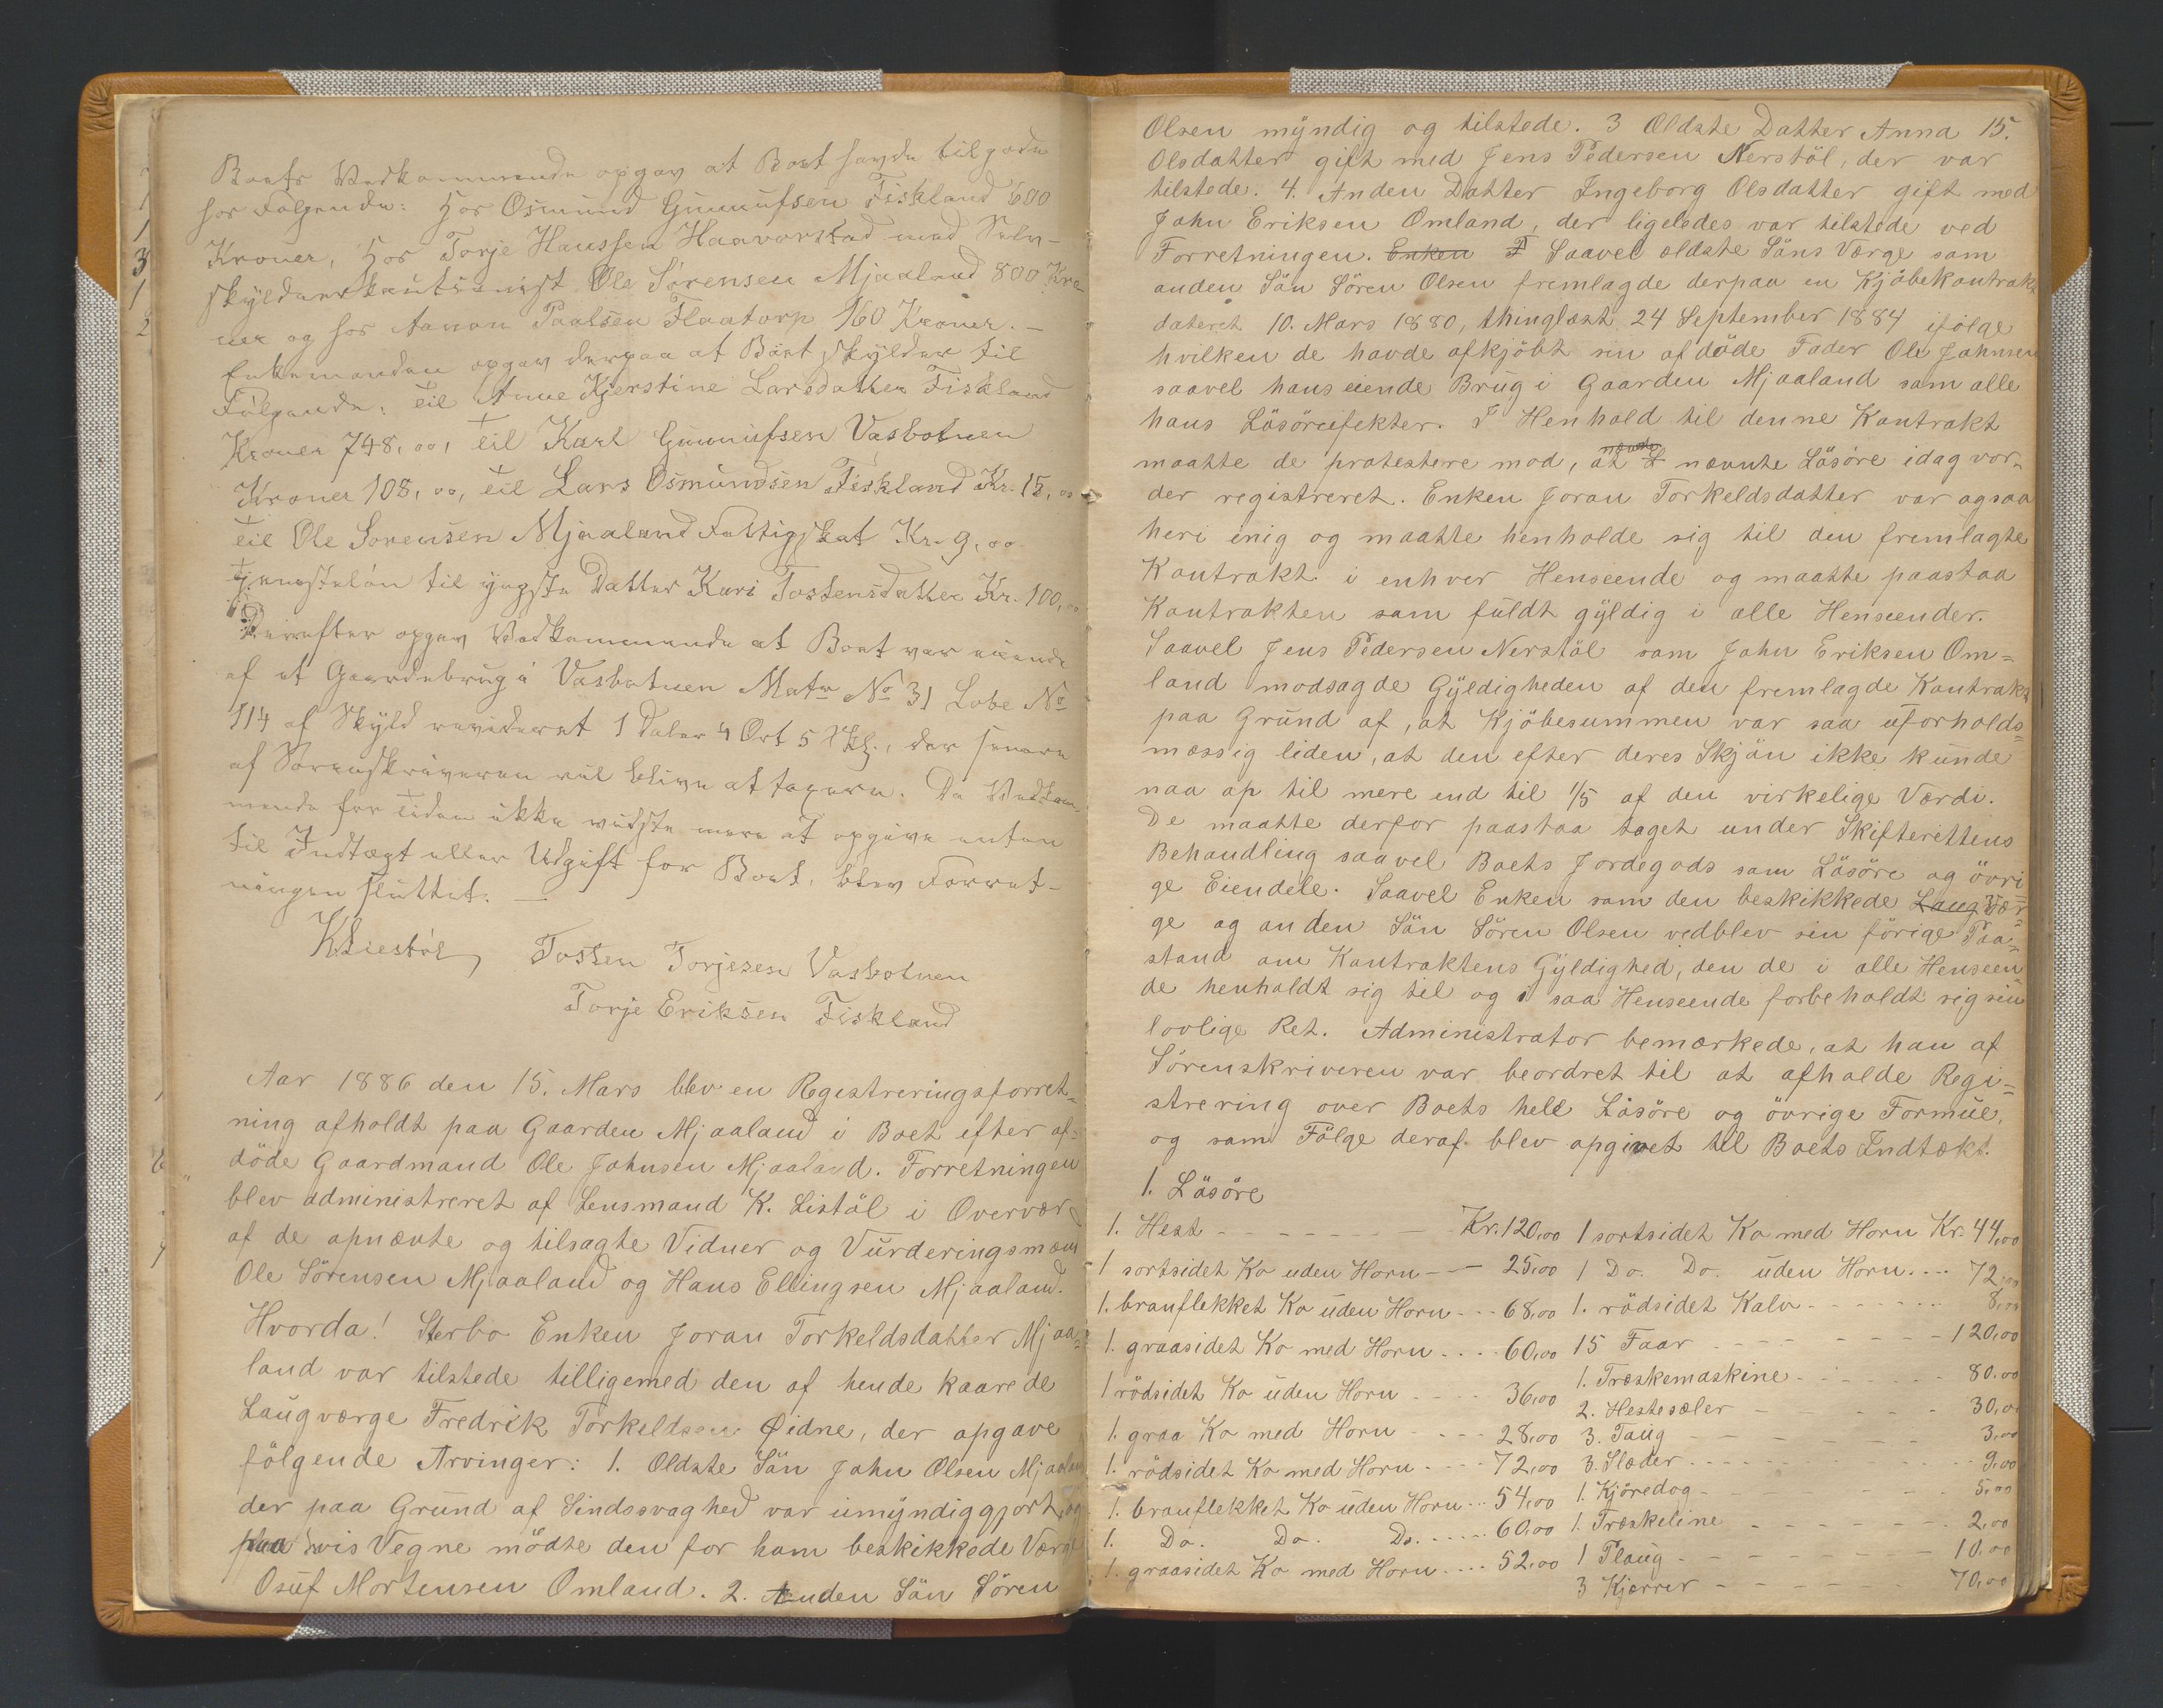 Boets Vedkommende opgav at Boet havde tilgode
hos Følgende: Hos Osmund Gunnufsen Fiskland 600
Kroner, Hos Torje Hanssen Haavorstad med Selv-
skyldnerkautionist Ole Sörensen Mjaaland 800 Kro-
ner og hos Aanon Paalsen Flaatorp 160 Kroner. –
Enkemanden opgav derpaa at Boet skylder til
Følgende: til Anne Kjerstine Larsdatter Fiskland
Kroner 748,00, til Karl Gunnufsen Vasbotnen
Kroner 108,00, til Lars Osmundsen Fiskland Kr. 15,00
til Ole Sörensen Mjaaland Fattigskat Kr. 9,00
Tjenesteløn til yngste Datter Kari Tostensdatter Kr. 100,00
Derefter opgav Vedkommende at Boet var eiende
af et Gaardebrug i Vasbotnen Matr No 31 Løbe No
114 af Skyld revideret 1 Daler 4 Ort 5 Skl., der senere
af Sorenskriveren vil blive at taxere. Da Vedkom-
mende for tiden ikke vidste mere at opgive enten
til Indtægt eller Udgift for Boet, blev Forret-
ningen sluttet. –
K Liestöl, Tosten Torjesen Vasbotnen
Torje Eriksen Fiskland
Aar 1886 den 15. Mars blev en Registreringsforret=
ning afholdt paa Gaarden Mjaaland i Boet efter af=
döde Gaardmand Ole Johnsen Mjaaland. Forretningen
blev administreret af Lensmand K. Listöl i Overvær
af de opnævnte og tilsagte Vidner og Vurderingsmænd
Ole Sörensen Mjaaland og Hans Ellingsen Mjaaland.
Hvorda! Sterbo Enken Joran Torkeldsdatter Mjaa=
land var tilstede tilligemed den af hende kaarede
Laugværge Fredrik Torkeldsen Øidne, der opgave
fölgende Arvinger: 1. Oldste Sön John Olsen Mjaaland
der paa Grund af Sindssvaghed var umyndiggjort, og
paa hvis Vegne mödte den for ham beskikkede Værge
Osuf Mortensen Omland. 2. Anden Sön Sören
Olsen myndig og tilstede. 3 Oldste Datter Anna 15.
Olsdatter gift med Jens Pedersen Nerstöl, der var
tilstede. 4. Anden Datter Ingeborg Olsdatter gift med
John Eriksen Omland, der ligeledes var tilstede ved
Forretningen. Enken Saavel ældste Söns Værge som
anden Sön Sören Olsen fremlagde derpaa en Kjöbekontrakt
dateret 10. Mars 1880, thinglæst 24 September 1884 ifölge
hvilken de havde afkjöbt sin afdöde Fader Ole Johnsen
saavel hans eiende Brug i Gaarden Mjaaland som alle
hans Lösöreeffekter. I Henhold til denne Kontrakt
maatte de protestere mod, at nævnte Lösöre idag vor=
der registreret. Enken Joran Torkeldsdatter var ogsaa
heri enig og maatte henholde sig til den fremlagte
Kontrakt i enhver Henseende og maatte paastaa
Kontrakten som fuldt gyldig i alle Henseender.
Saavel Jens Pedersen Nerstöl som John Eriksen Om=
land modsagde Gyldigheden af den fremlagde Kontrakt
paa Grund af, at Kjöbesummen var saa uforholds=
mæssig liden, at den efter deres Skjön ikke kunde
naa op til mere end til 1/5 af den virkelige Værdi.
De maatte derfor paastaa taget under Skifterettens
Behandling saavel Boets Jordegods som Lösöre og övri
ge Eiendele. Saavel Enken som den beskikkede Laug Vær=
ge og anden Sön Sören Olsen vedblev sin förige Paa=
stand om Kontraktens Gyldighed, den de i alle Henseen
de henholdt sig til og i saa Henseende forbeholdt sig sin
lovlige Ret. Administrator bemærkede, at han af
Sörenskriveren var beordret til at afholde Regi=
strering over Boets hele Lösöre og övrige Formue,
og som Fölge deraf blev opgivet til Boets Indtækt.
1. Lösöre
1. Hest - - - - Kr. 120,00 1 sortsidet Ko med Horn Kr. 44,00
1 sortsidet Ko uden Horn - - 25,00 1 Do. Do. uden Horn .... 72,00
1. branflekket Ko uden Horn - - - 68,00 1. rödsidet Kalv - - - - 8,00
1. graasidet Ko med Horn . . . . 60,00 15 Faar - - - - 120,00
1 rödsidet Ko uden Horn - - - - 36,00 1. Træskemaskine - - - - 80,00
1. graa Ko med Horn - - - - 28,00 2. Hestesæler - - - - 30,00
1. rödsidet Ko med Horn - - - - 72,00 3. Taug - - - - 3,00
1. branflekket Ko uden Horn ... 54,00 3. Slæder - - - - 9,00
1. Do. Do. Do. - - - - 60,00 1. Kjöredog - - - - 5,00
1. graasidet Ko med Horn .... 52,00 1. Træskeline - - - - 2,00
1 Ploug - - - - 10,00
3 Kjærrer - - - - 70,00